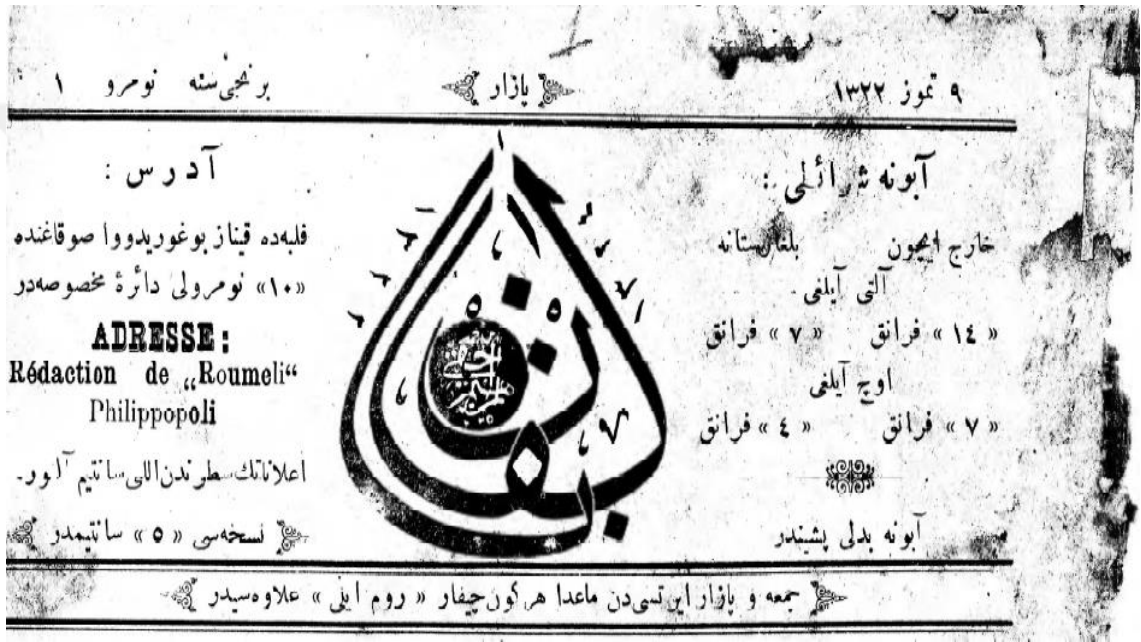 ٩ تموز ١٣٢٢
پازار
برنجی سنه نومرو ١
آبونه شرائطی :
خارج ایچون بلغارستانه
آلتی آیلغی
« ١٤ » فرانق « ٧ » فرانق
اوچ آیلغی
« ٧ » فرانق « ٤ » فرانق
آبونه بدلی پشیندر
بلقان
آدرس :
فلبه‌ده قیناز بوغوریدووا صوقاغنده
«١٠» نومرولی دائرۀ مخصوصه‌در
ADRESSE :
Rédaction de „Roumeli“
Philippopoli
اعلاناتك سطرندن اللی سانتیم آلنور.
نسخه‌سی « ٥ » سانتیمدر
جمعه و پازار ایرتسی‌دن ماعدا هر کون چیقار « روم ایلی » علاوه‌سیدر